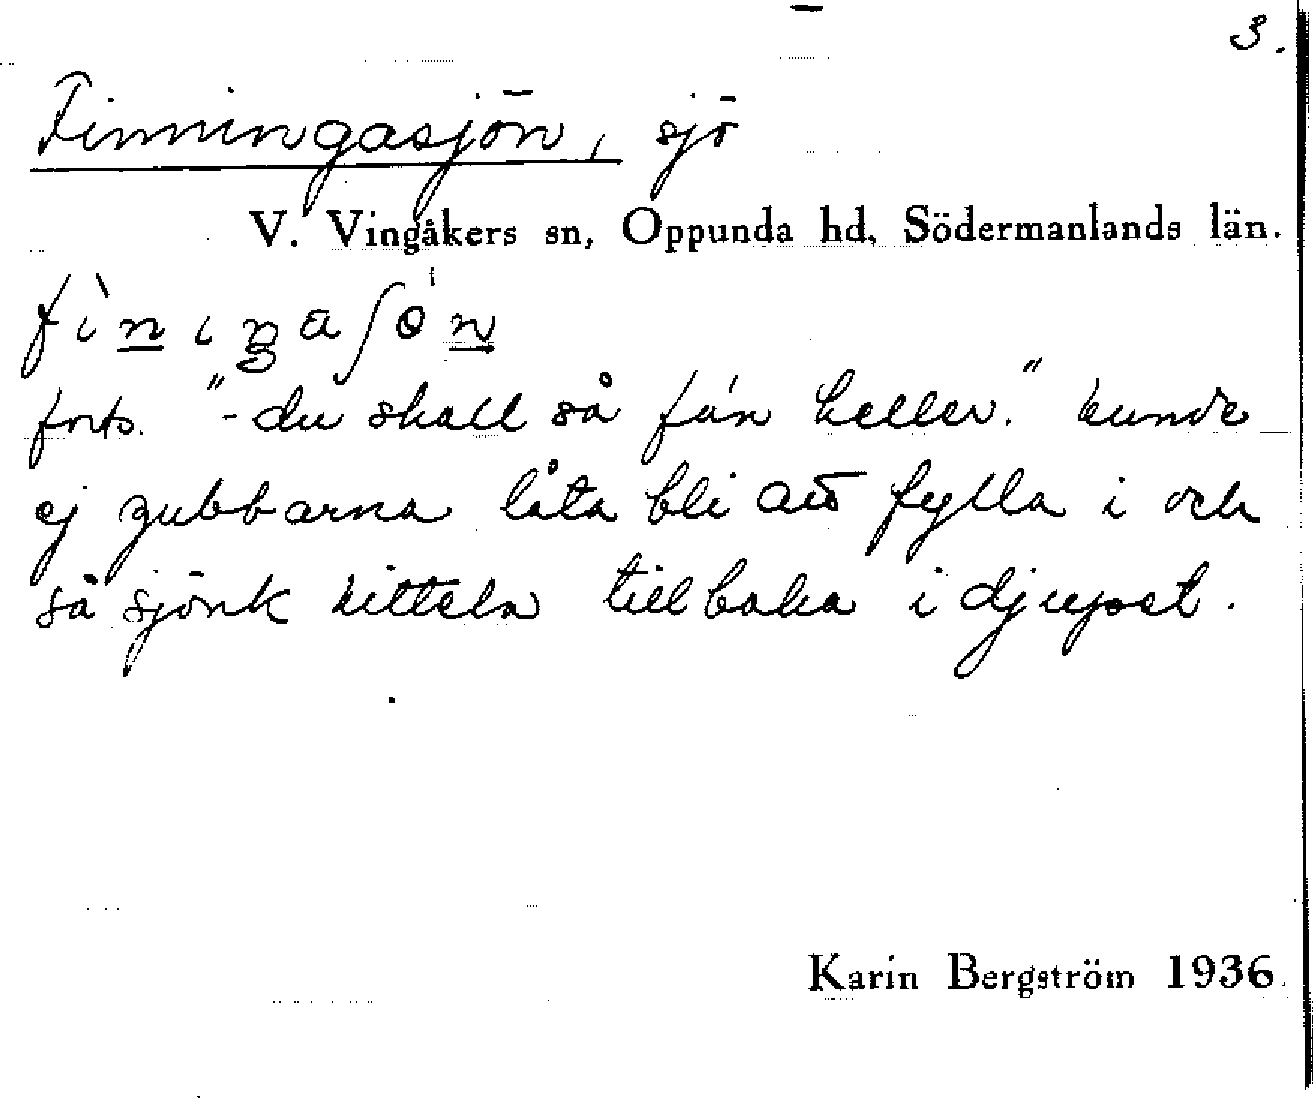 3.
Finningasjön, sjö
V. Vingåkers sn, Oppunda hd, Södermanlands län.
forts. "- du skall så fan heller." kunde
ej gubbarna låta bli att fylla i och
så sjönk kitteln tillbaka i djupet.
Karin Bergström 1936